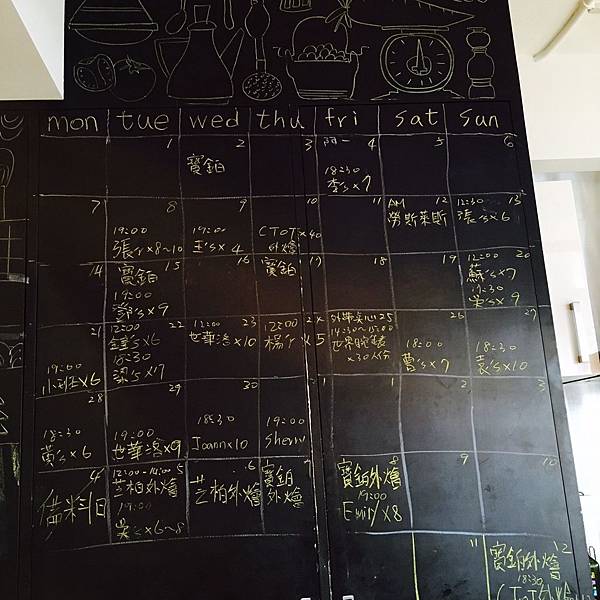 mon tue wed thu fri sat sun
1 2 3 4 5 6
寶鉑
18:30
李's x 7
7 8 9 10 11 12 13
19:00
張's x 8~10
19:00
王's x 4
CTOT x 40
外燴
AM
勞斯萊斯
12:30
張's x 6
14 15 16 17 18 19 20
寶鉑
19:00
郭's x 9
寶鉑
12:00
蘇's x 7
17:30
吳's x 9
21 22 23 24 25 26 27
19:00
x 6
12:00
x 6
18:30
梁's x 17
12:00
世華洛 x 10
12:00
楊's x 5
14:30~15:00
x 30人份
18:00
曹's x 7
18:30
袁's x 10
28 29 30 1 2 3
18:30
黃's x 6
19:00
世華洛 x 9
18:30
Joann x 10
19:00
Sherry
4 5 6 7 8 9 10
備料日
12:00-14:00
芝柏外燴
19:00
吳's x 6~8
芝柏外燴
寶鉑
外燴
寶鉑外燴
19:00
Emily x 8
11 12
寶鉑外燴
18:30
CTOT外燴